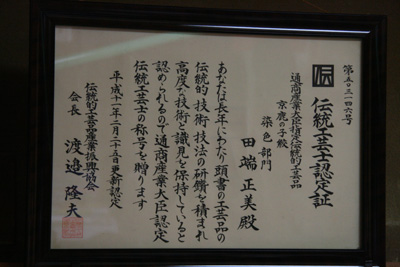 第五〇三一四六号
伝
伝統工芸士認定証
通商産業大臣指定伝統的工芸品
京鹿の子絞
染色部門
田端正美殿
あなたは長年にわたり頭書の工芸品の
伝統的技術・技法の研鑽を積まれ
高度な技術と識見を保持していると
認められるので通商産業大臣認定
伝統工芸士の称号を贈ります
平成十二年二月二十五日更新認定
伝統的工芸品産業振興協会
会長 渡邉隆夫